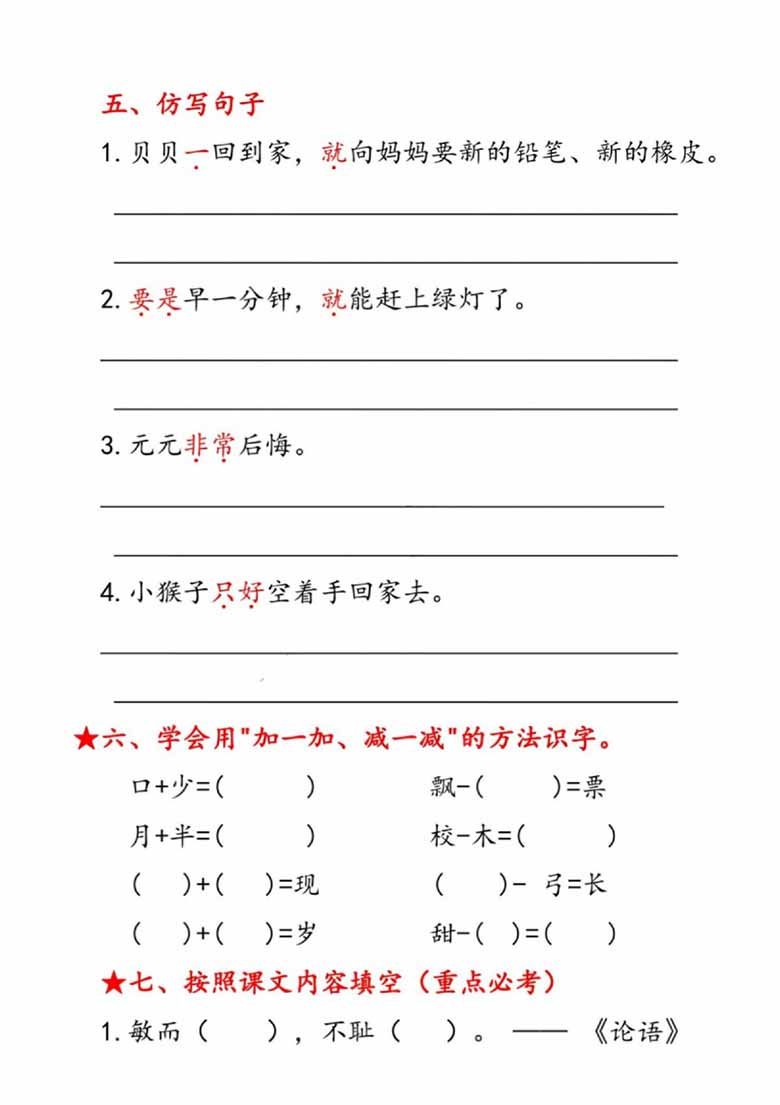 五、仿写句子
1.贝贝一回到家，就向妈妈要新的铅笔、新的橡皮。
2.要是早一分钟，就能赶上绿灯了。
3.元元非常后悔。
4.小猴子只好空着手回家去。
★六、学会用"加一加、减一减"的方法识字。
口+少=(      )        飘-(     )=票
月+半=(      )        校-木=(      )
(   )+(   )=现        (    )- 弓=长
(   )+(   )=岁        甜-(  )=(    )
★七、按照课文内容填空（重点必考）
1.敏而（    ），不耻（   ）。 —— 《论语》